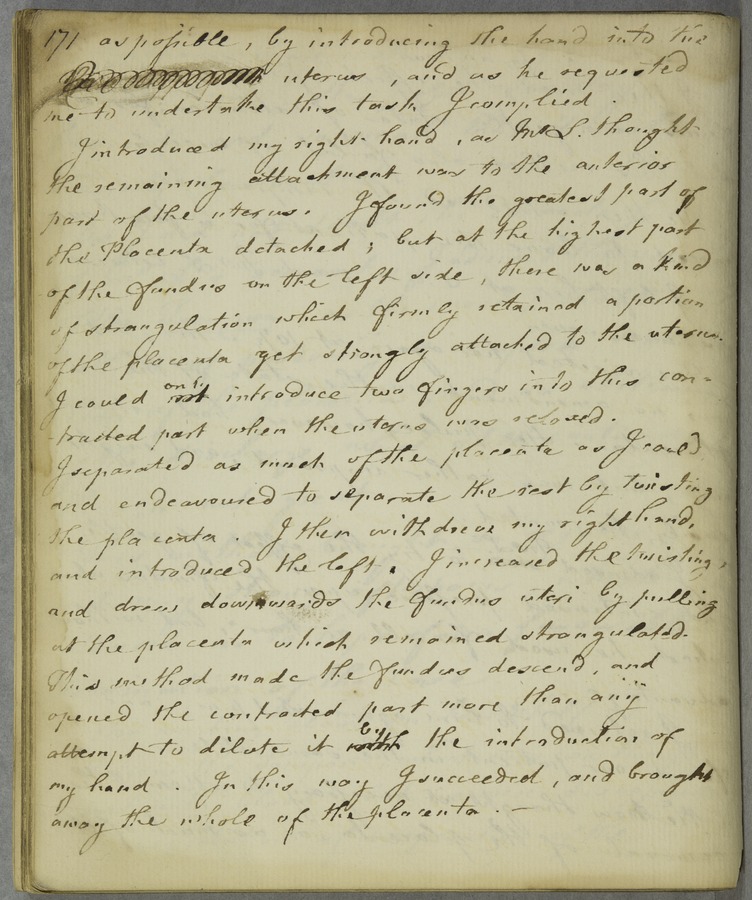 171 as possible, by introducing the hand into the
uterus, and as he requested
me to undertake this task I complied.
I introduced my right hand, as Mr S. thought
the remaining attachment was to the anterior
part of the uterus. I found the greatest part of
the Placenta detached; but at the highest part
of the fundus on the left side, there was a kind
of strangulation which firmly retained a portion
of the placenta yet strongly attached to the uterus.
I could only introduce two fingers into this con=
tracted part when the uterus was relaxed.
I separated as much of the placenta as I could
and endeavoured to separate the rest by twisting
the placenta. I then withdrew my right hand,
and introduced the left. I increased the twisting,
and drew downwards the fundus uteri by pulling
at the placenta which remained strangulated.
This method made the fundus descend, and
opened the contracted part more than any
attempt to dilate it by the introduction of
my hand. In this way I succeeded, and brought
away the whole of the placenta. —